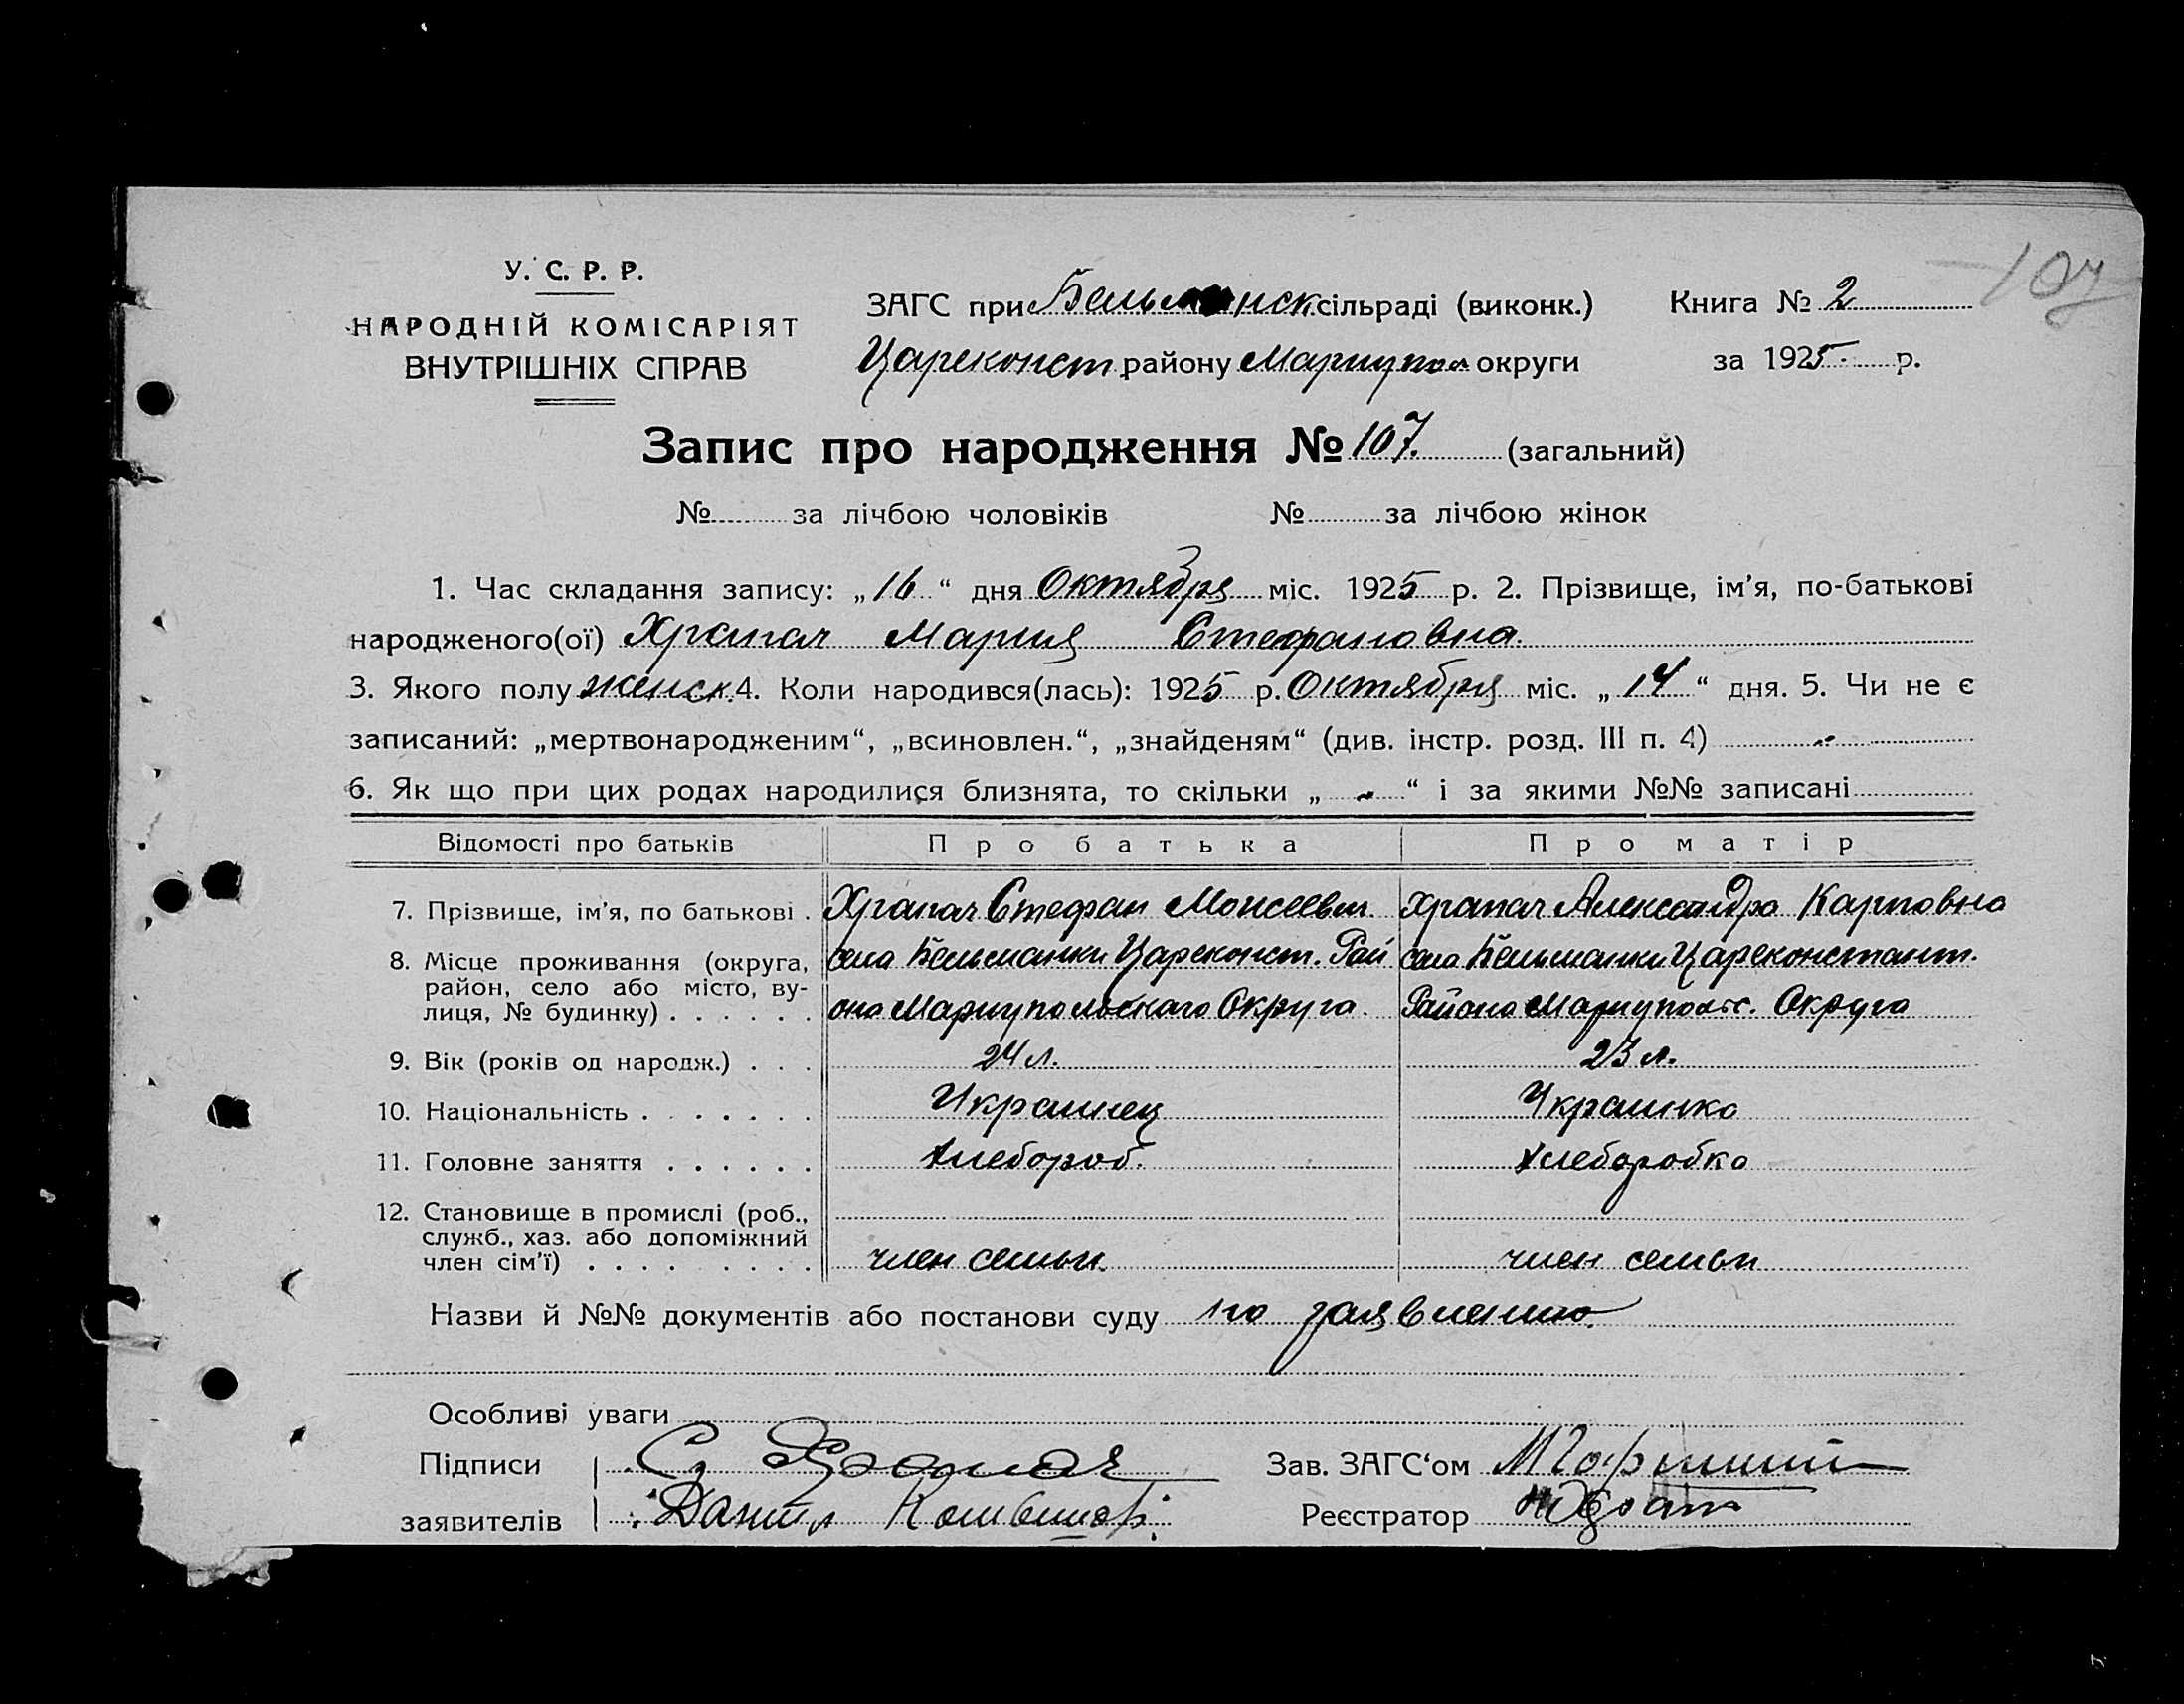 107
У. С. Р. Р.
НАРОДНІЙ КОМІСАРІЯТ
ВНУТРІШНІХ СПРАВ
ЗАГС при Бельманск сільраді (виконк.)
Цареконст району Мариупол округи
Книга № 2
за 1925 р.
Запис про народження № 107. (загальний)
№ за лічбою чоловіків № за лічбою жінок
1. Час складання запису: „16“ дня Октября міс. 1925 р. 2. Прізвище, ім’я, по-батькові
народженого(ої) Храпач Мария Стефановна.
3. Якого полу женск. 4. Коли народився(лась): 1925 р. Октября міс. „14“ дня. 5. Чи не є
записаний: „мертвонародженим“, „всиновлен.“, „знайденям“ (див. інстр. розд. III п. 4)
6. Як що при цих родах народилися близнята, то скільки „ - “ і за якими №№ записані
Відомості про батьків Про батька Про матір
7. Прізвище, ім’я, по батькові . Храпач Стефан Моисеевич Храпач Александра Карповна
8. Місце проживання (округа, район, село або місто, вулиця, № будинку) . . . . . .
села Бельманки Цареконст. Рай
она Мариупольскаго Округа.
села Бельманки Цареконстант.
Района Мариупольс. Округа
9. Вік (років од народж.) . . . 24 л. 23 л.
10. Національність . . . . . . . Украинец Украинка
11. Головне заняття . . . . . . Хлебороб. Хлеборобка
12. Становище в промислі (роб., служб., хаз. або допоміжний член сім’ї) . . . . . . . . член семьи. член семьи
Назви й №№ документів або постанови суду по заявлению.
Особливі уваги
Підписи С Храпач
заявителів Данил
Зав. ЗАГС‘ом
Реєстратор